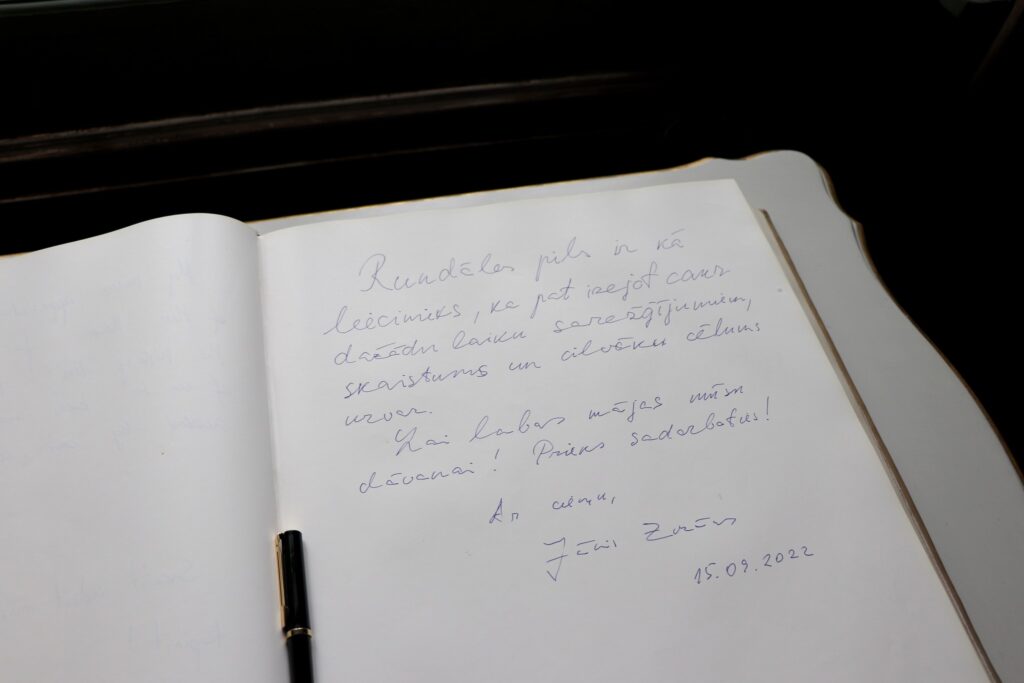 Rundāles pils ir kā
liecinieks, ka pat izejot caur
dažādu laiku sarežģījumiem,
skaistums un cilvēku cēlums
uzvar.
Lai labas mājas mūsu
dāvanai! Prieks sadarboties!
Ar cieņu,
Jānis Zuzāns
15.09.2022